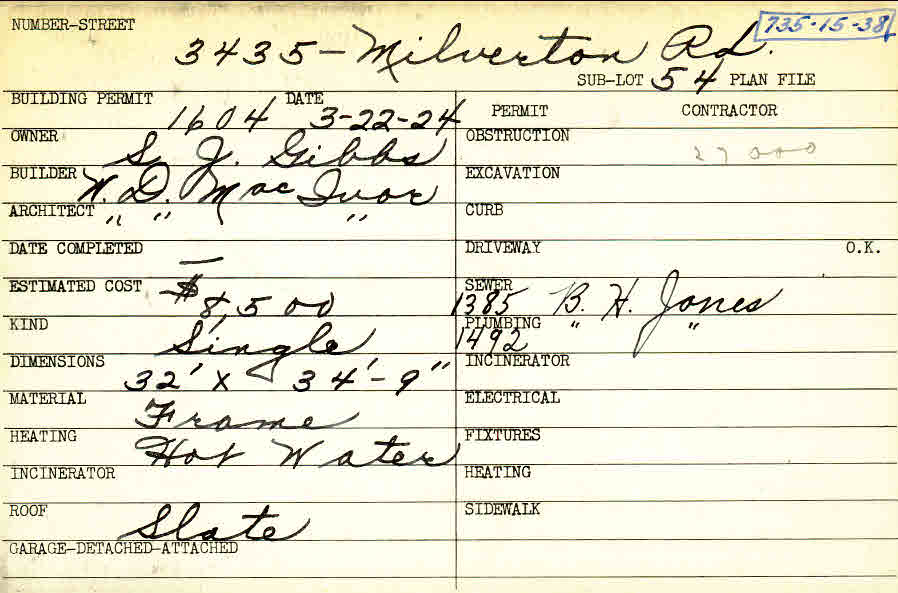 NUMBER-STREET
735-15-38
3435 - Milverton Rd.
SUB-LOT 54 PLAN FILE
BUILDING PERMIT 1604 DATE 3-22-24
PERMIT CONTRACTOR
OWNER S. J. Gibbs
OBSTRUCTION
27000
BUILDER W. D. Mac Ivor
EXCAVATION
ARCHITECT " " "
CURB
DATE COMPLETED —
DRIVEWAY O.K.
ESTIMATED COST $8,500
SEWER 1385 B. H. Jones
KIND Single
PLUMBING 1492 " "
DIMENSIONS 32' x 34'-9"
INCINERATOR
MATERIAL Frame
ELECTRICAL
HEATING Hot Water
FIXTURES
INCINERATOR
HEATING
ROOF Slate
SIDEWALK
GARAGE-DETACHED-ATTACHED